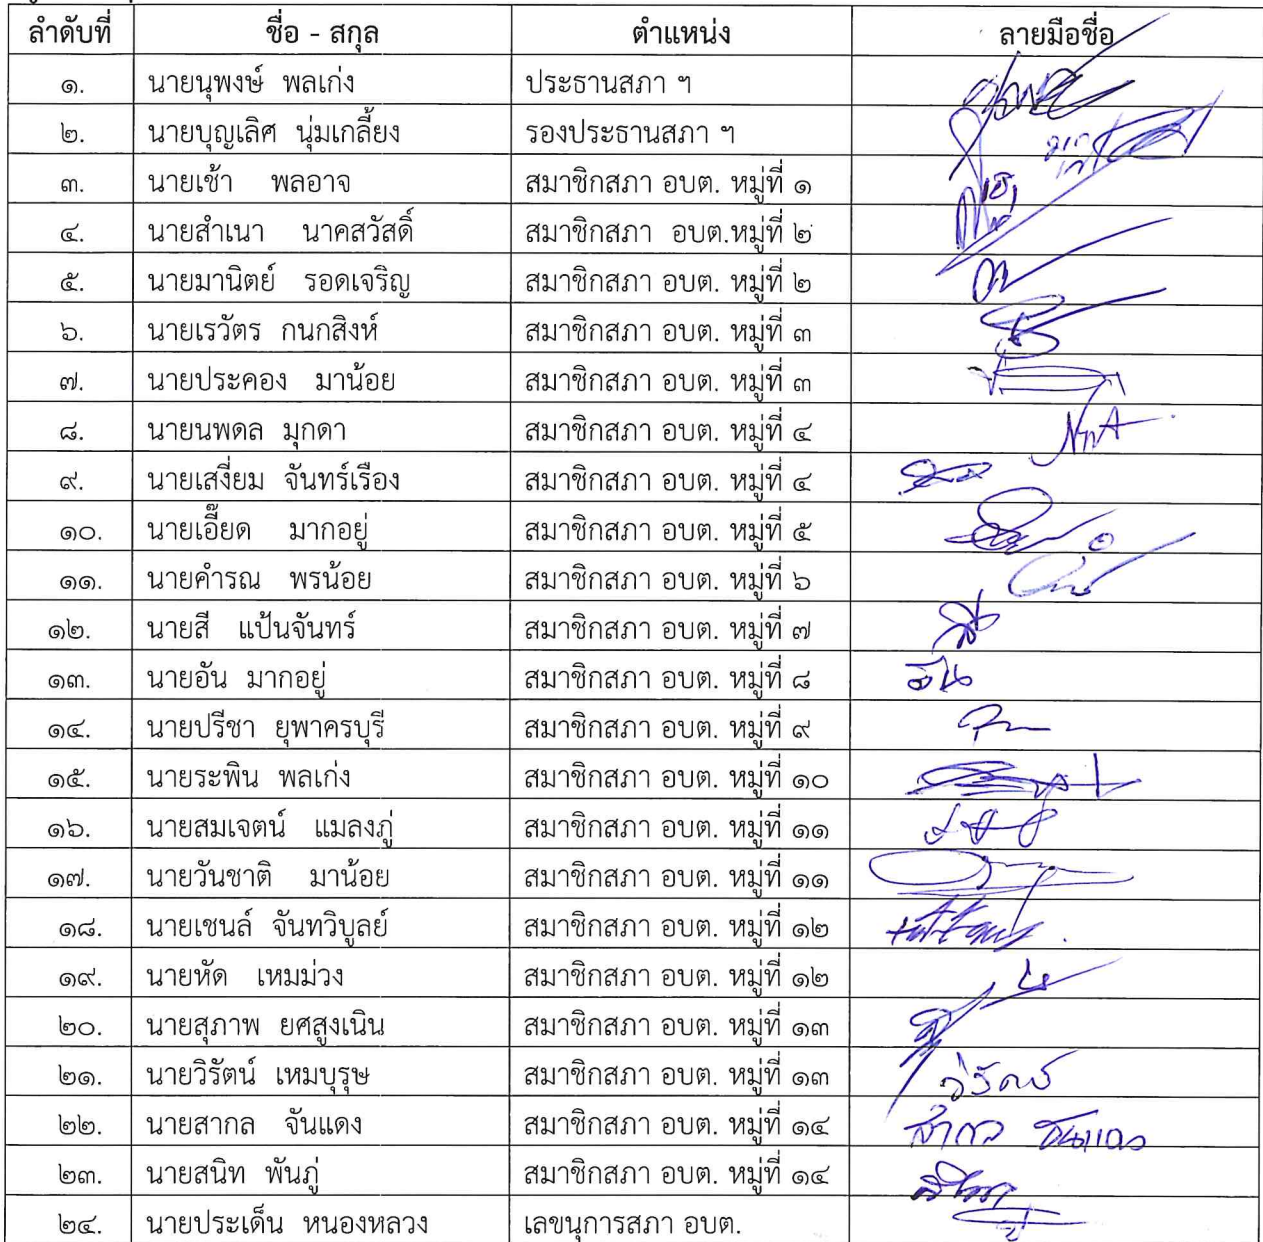 ลำดับที่ ชื่อ - สกุล ตำแหน่ง ลายมือชื่อ
๑. นายนุพงษ์ พลเก่ง ประธานสภา ฯ
๒. นายบุญเลิศ นุ่มเกลี้ยง รองประธานสภา ฯ
๓. นายเช้า พลอาจ สมาชิกสภา อบต. หมู่ที่ ๑
๔. นายสำเนา นาคสวัสดิ์ สมาชิกสภา อบต.หมู่ที่ ๒
๕. นายมานิตย์ รอดเจริญ สมาชิกสภา อบต. หมู่ที่ ๒
๖. นายเรวัตร กนกสิงห์ สมาชิกสภา อบต. หมู่ที่ ๓
๗. นายประคอง มาน้อย สมาชิกสภา อบต. หมู่ที่ ๓
๘. นายนพดล มุกดา สมาชิกสภา อบต. หมู่ที่ ๔
๙. นายเสงี่ยม จันทร์เรือง สมาชิกสภา อบต. หมู่ที่ ๔
๑๐. นายเอี๊ยด มากอยู่ สมาชิกสภา อบต. หมู่ที่ ๕
๑๑. นายคำรณ พรน้อย สมาชิกสภา อบต. หมู่ที่ ๖
๑๒. นายสี แป้นจันทร์ สมาชิกสภา อบต. หมู่ที่ ๗
๑๓. นายอัน มากอยู่ สมาชิกสภา อบต. หมู่ที่ ๘
๑๔. นายปรีชา ยุพาครบุรี สมาชิกสภา อบต. หมู่ที่ ๙
๑๕. นายระพิน พลเก่ง สมาชิกสภา อบต. หมู่ที่ ๑๐
๑๖. นายสมเจตน์ แมลงภู่ สมาชิกสภา อบต. หมู่ที่ ๑๑
๑๗. นายวันชาติ มาน้อย สมาชิกสภา อบต. หมู่ที่ ๑๑
๑๘. นายเชนล์ จันทวิบูลย์ สมาชิกสภา อบต. หมู่ที่ ๑๒
๑๙. นายหัด เหมม่วง สมาชิกสภา อบต. หมู่ที่ ๑๒
๒๐. นายสุภาพ ยศสูงเนิน สมาชิกสภา อบต. หมู่ที่ ๑๓
๒๑. นายวิรัตน์ เหมบุรุษ สมาชิกสภา อบต. หมู่ที่ ๑๓ วิรัตน์
๒๒. นายสากล จันแดง สมาชิกสภา อบต. หมู่ที่ ๑๔
๒๓. นายสนิท พันภู่ สมาชิกสภา อบต. หมู่ที่ ๑๔
๒๔. นายประเด็น หนองหลวง เลขนุการสภา อบต.